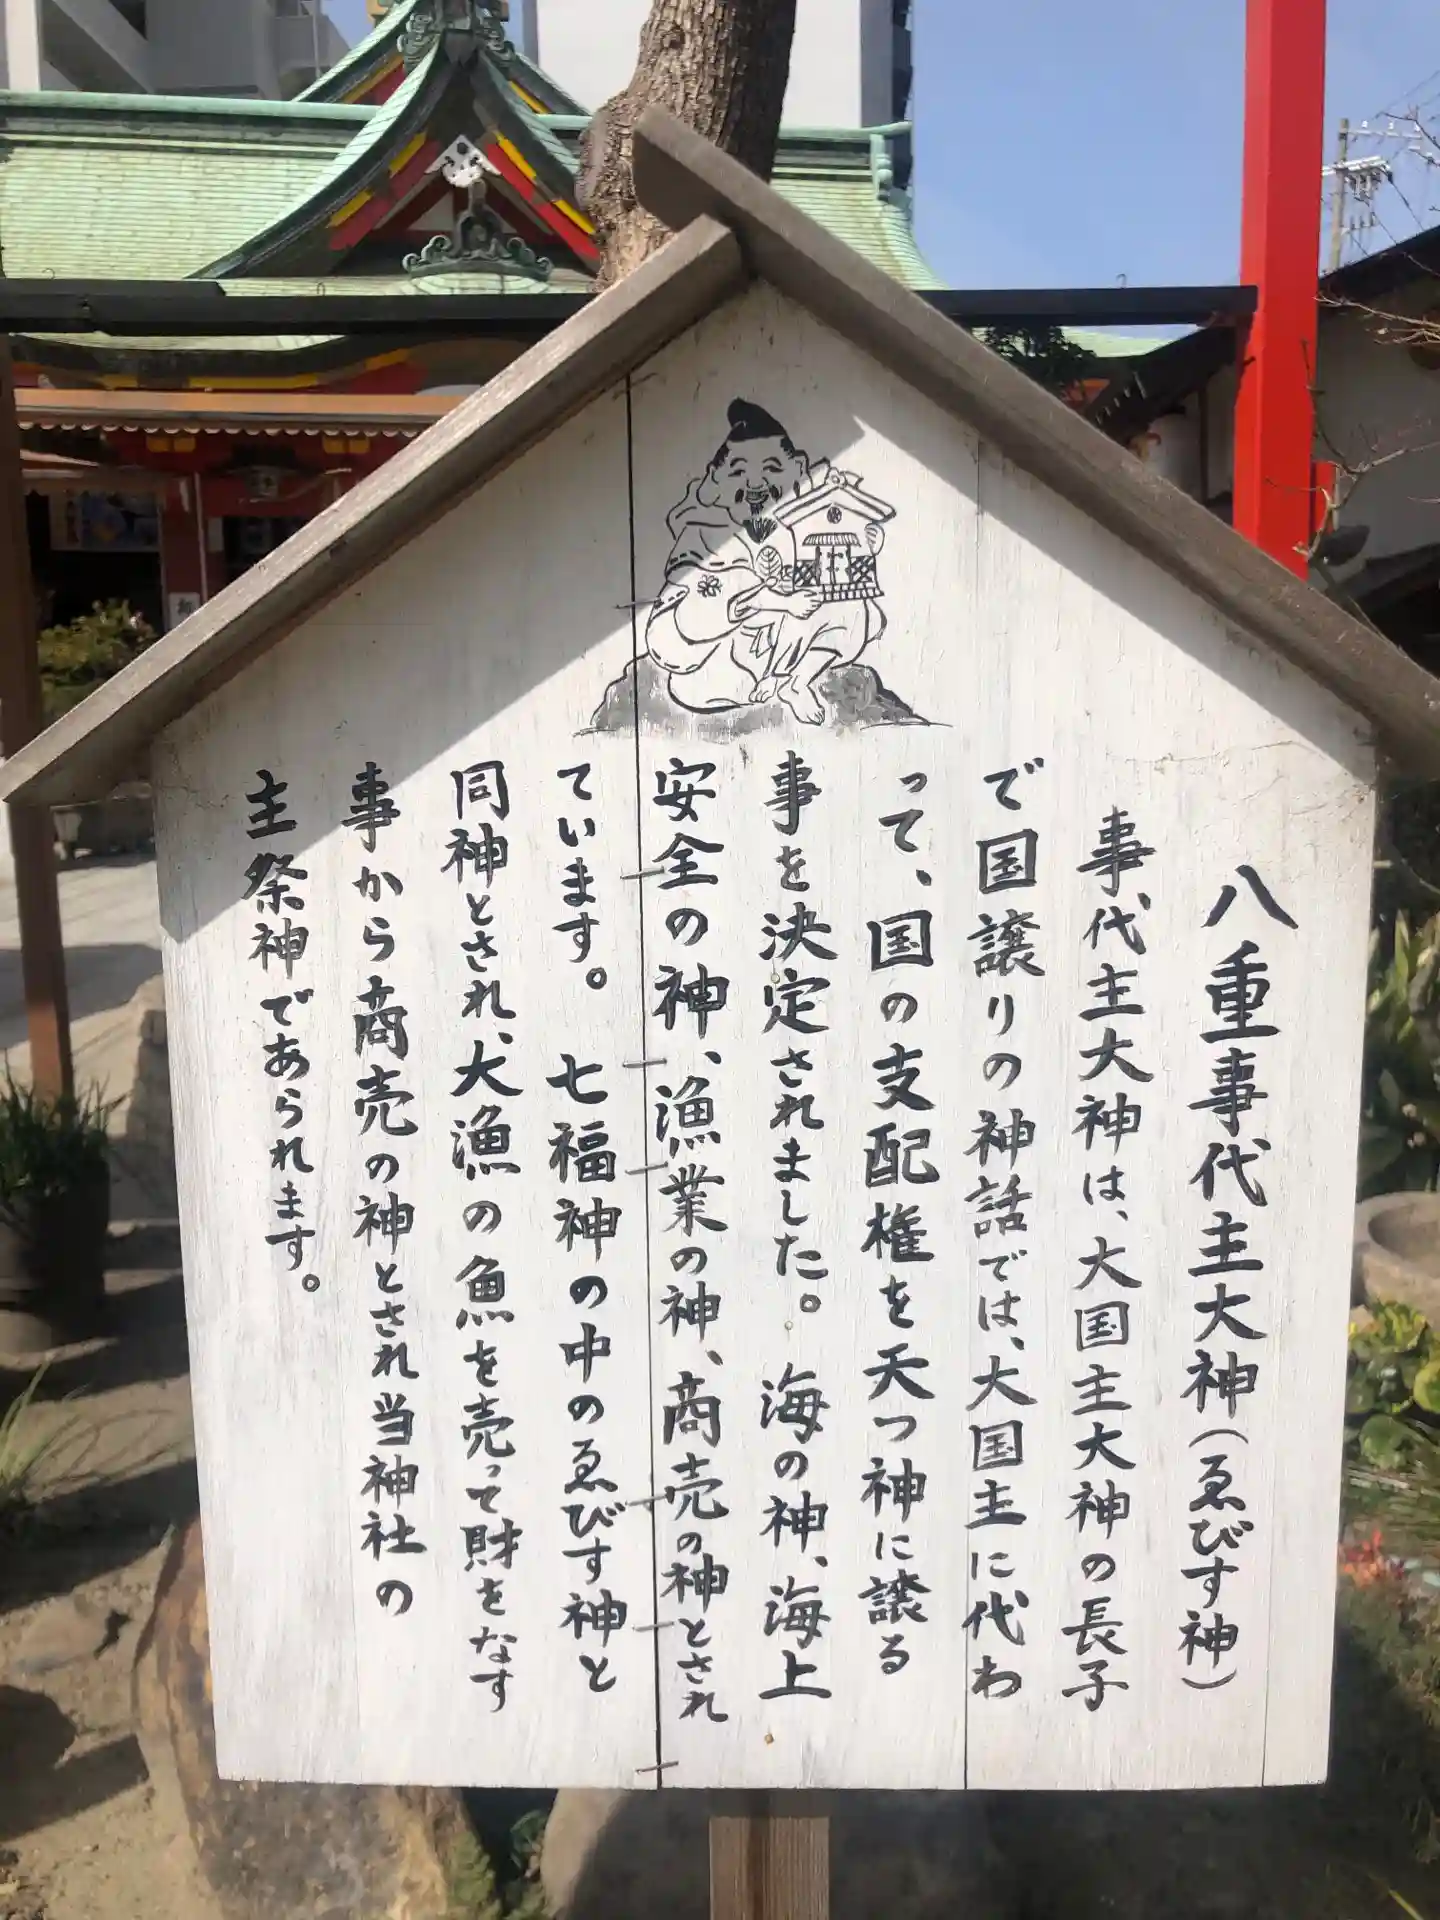 八重事代主大神(ゑびす神)
事代主大神は、大国主大神の長子
で国譲りの神話では、大国主に代わ
って、国の支配権を天つ神に譲る
事を決定されました。海の神、海上
安全の神、漁業の神、商売の神とされ
ています。七福神の中のゑびす神と
同神とされ、大漁の魚を売って財をなす
事から商売の神とされ当神社の
主祭神であられます。